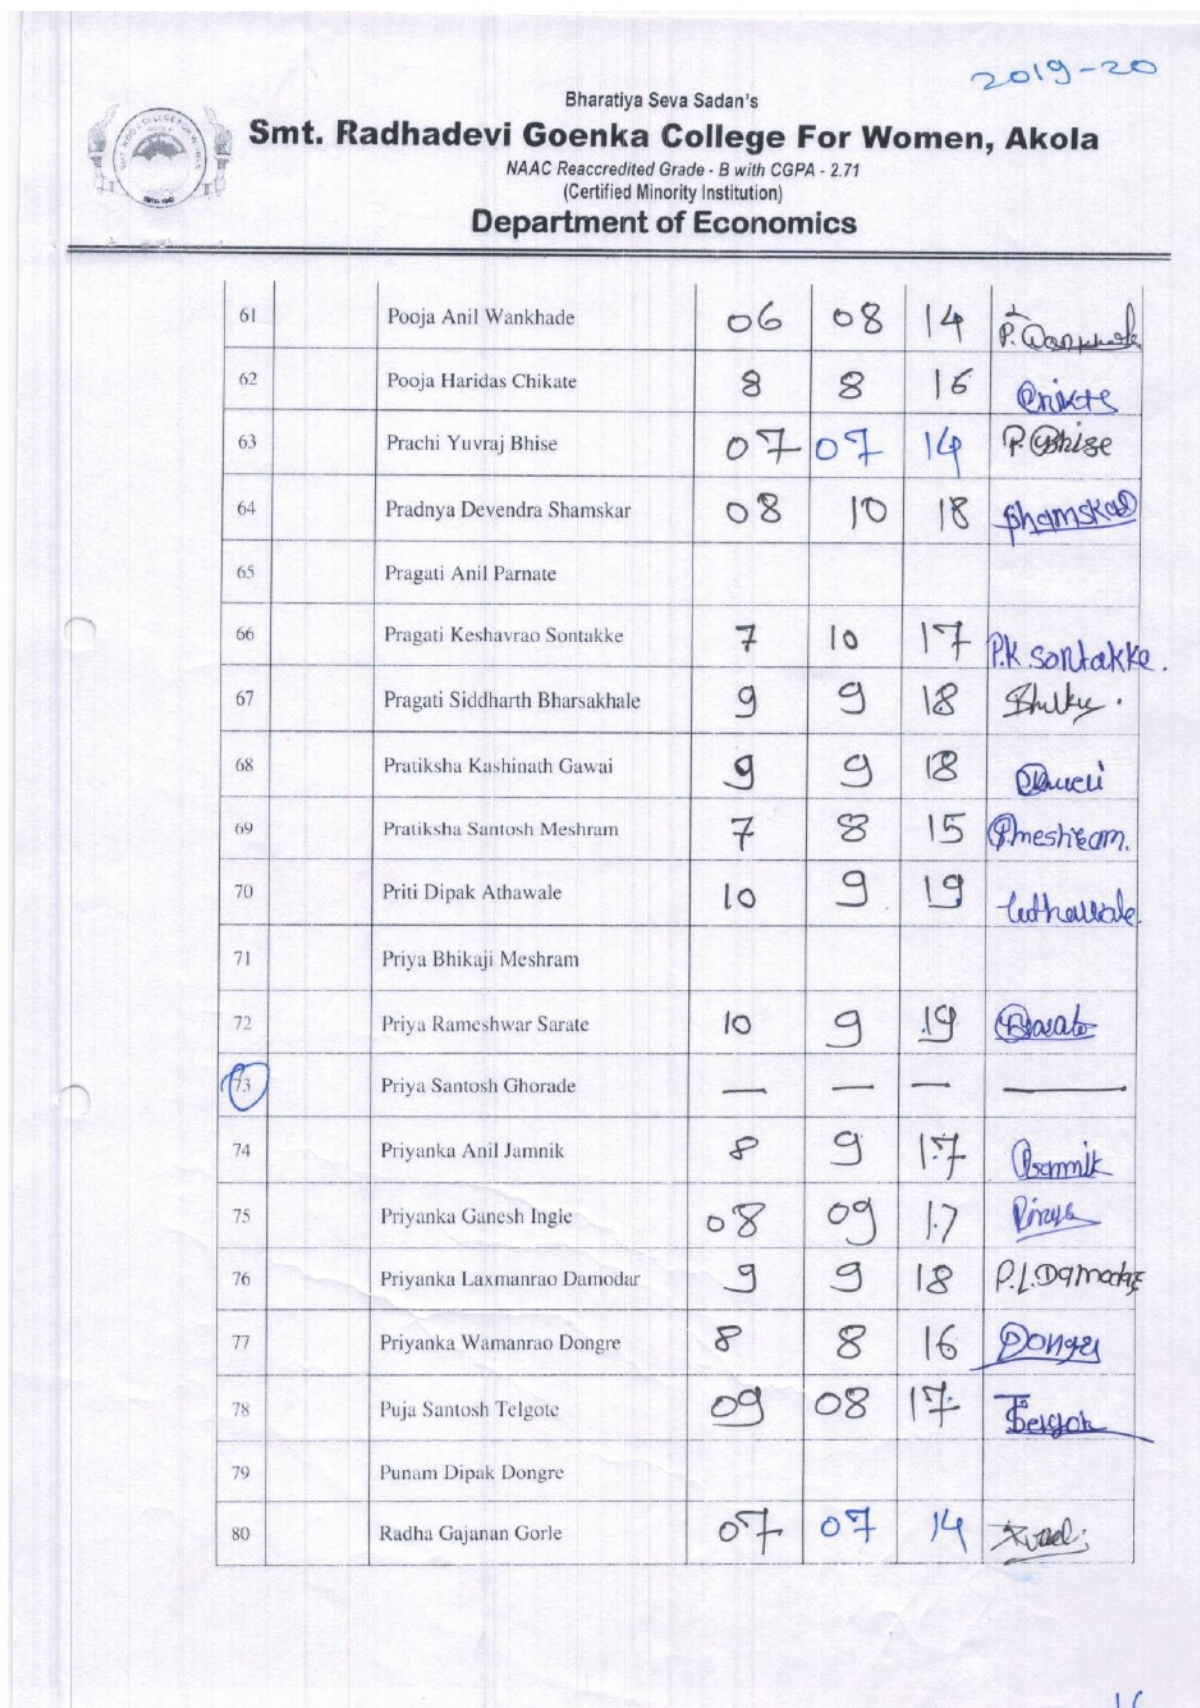 2019-20
Bharatiya Seva Sadan's
Smt. Radhadevi Goenka College For Women, Akola
NAAC Reaccredited Grade - B with CGPA - 2.71
(Certified Minority Institution)
Department of Economics
61 Pooja Anil Wankhade 06 08 14
62 Pooja Haridas Chikate 8 8 16
63 Prachi Yuvraj Bhise 07 07 14 P. Bhise
64 Pradnya Devendra Shamskar 08 10 18
65 Pragati Anil Parnate
66 Pragati Keshavrao Sontakke 7 10 17 P.K. Sontakke.
67 Pragati Siddharth Bharsakhale 9 9 18
68 Pratiksha Kashinath Gawai 9 9 18
69 Pratiksha Santosh Meshram 7 8 15 P.meshram.
70 Priti Dipak Athawale 10 9 19
71 Priya Bhikaji Meshram
72 Priya Rameshwar Sarate 10 9 19
73 Priya Santosh Ghorade — — — —
74 Priyanka Anil Jamnik 8 9 17
75 Priyanka Ganesh Ingle 08 09 17
76 Priyanka Laxmanrao Damodar 9 9 18 P.L.Damodar
77 Priyanka Wamanrao Dongre 8 8 16
78 Puja Santosh Telgote 09 08 17
79 Punam Dipak Dongre
80 Radha Gajanan Gorle 07 07 14